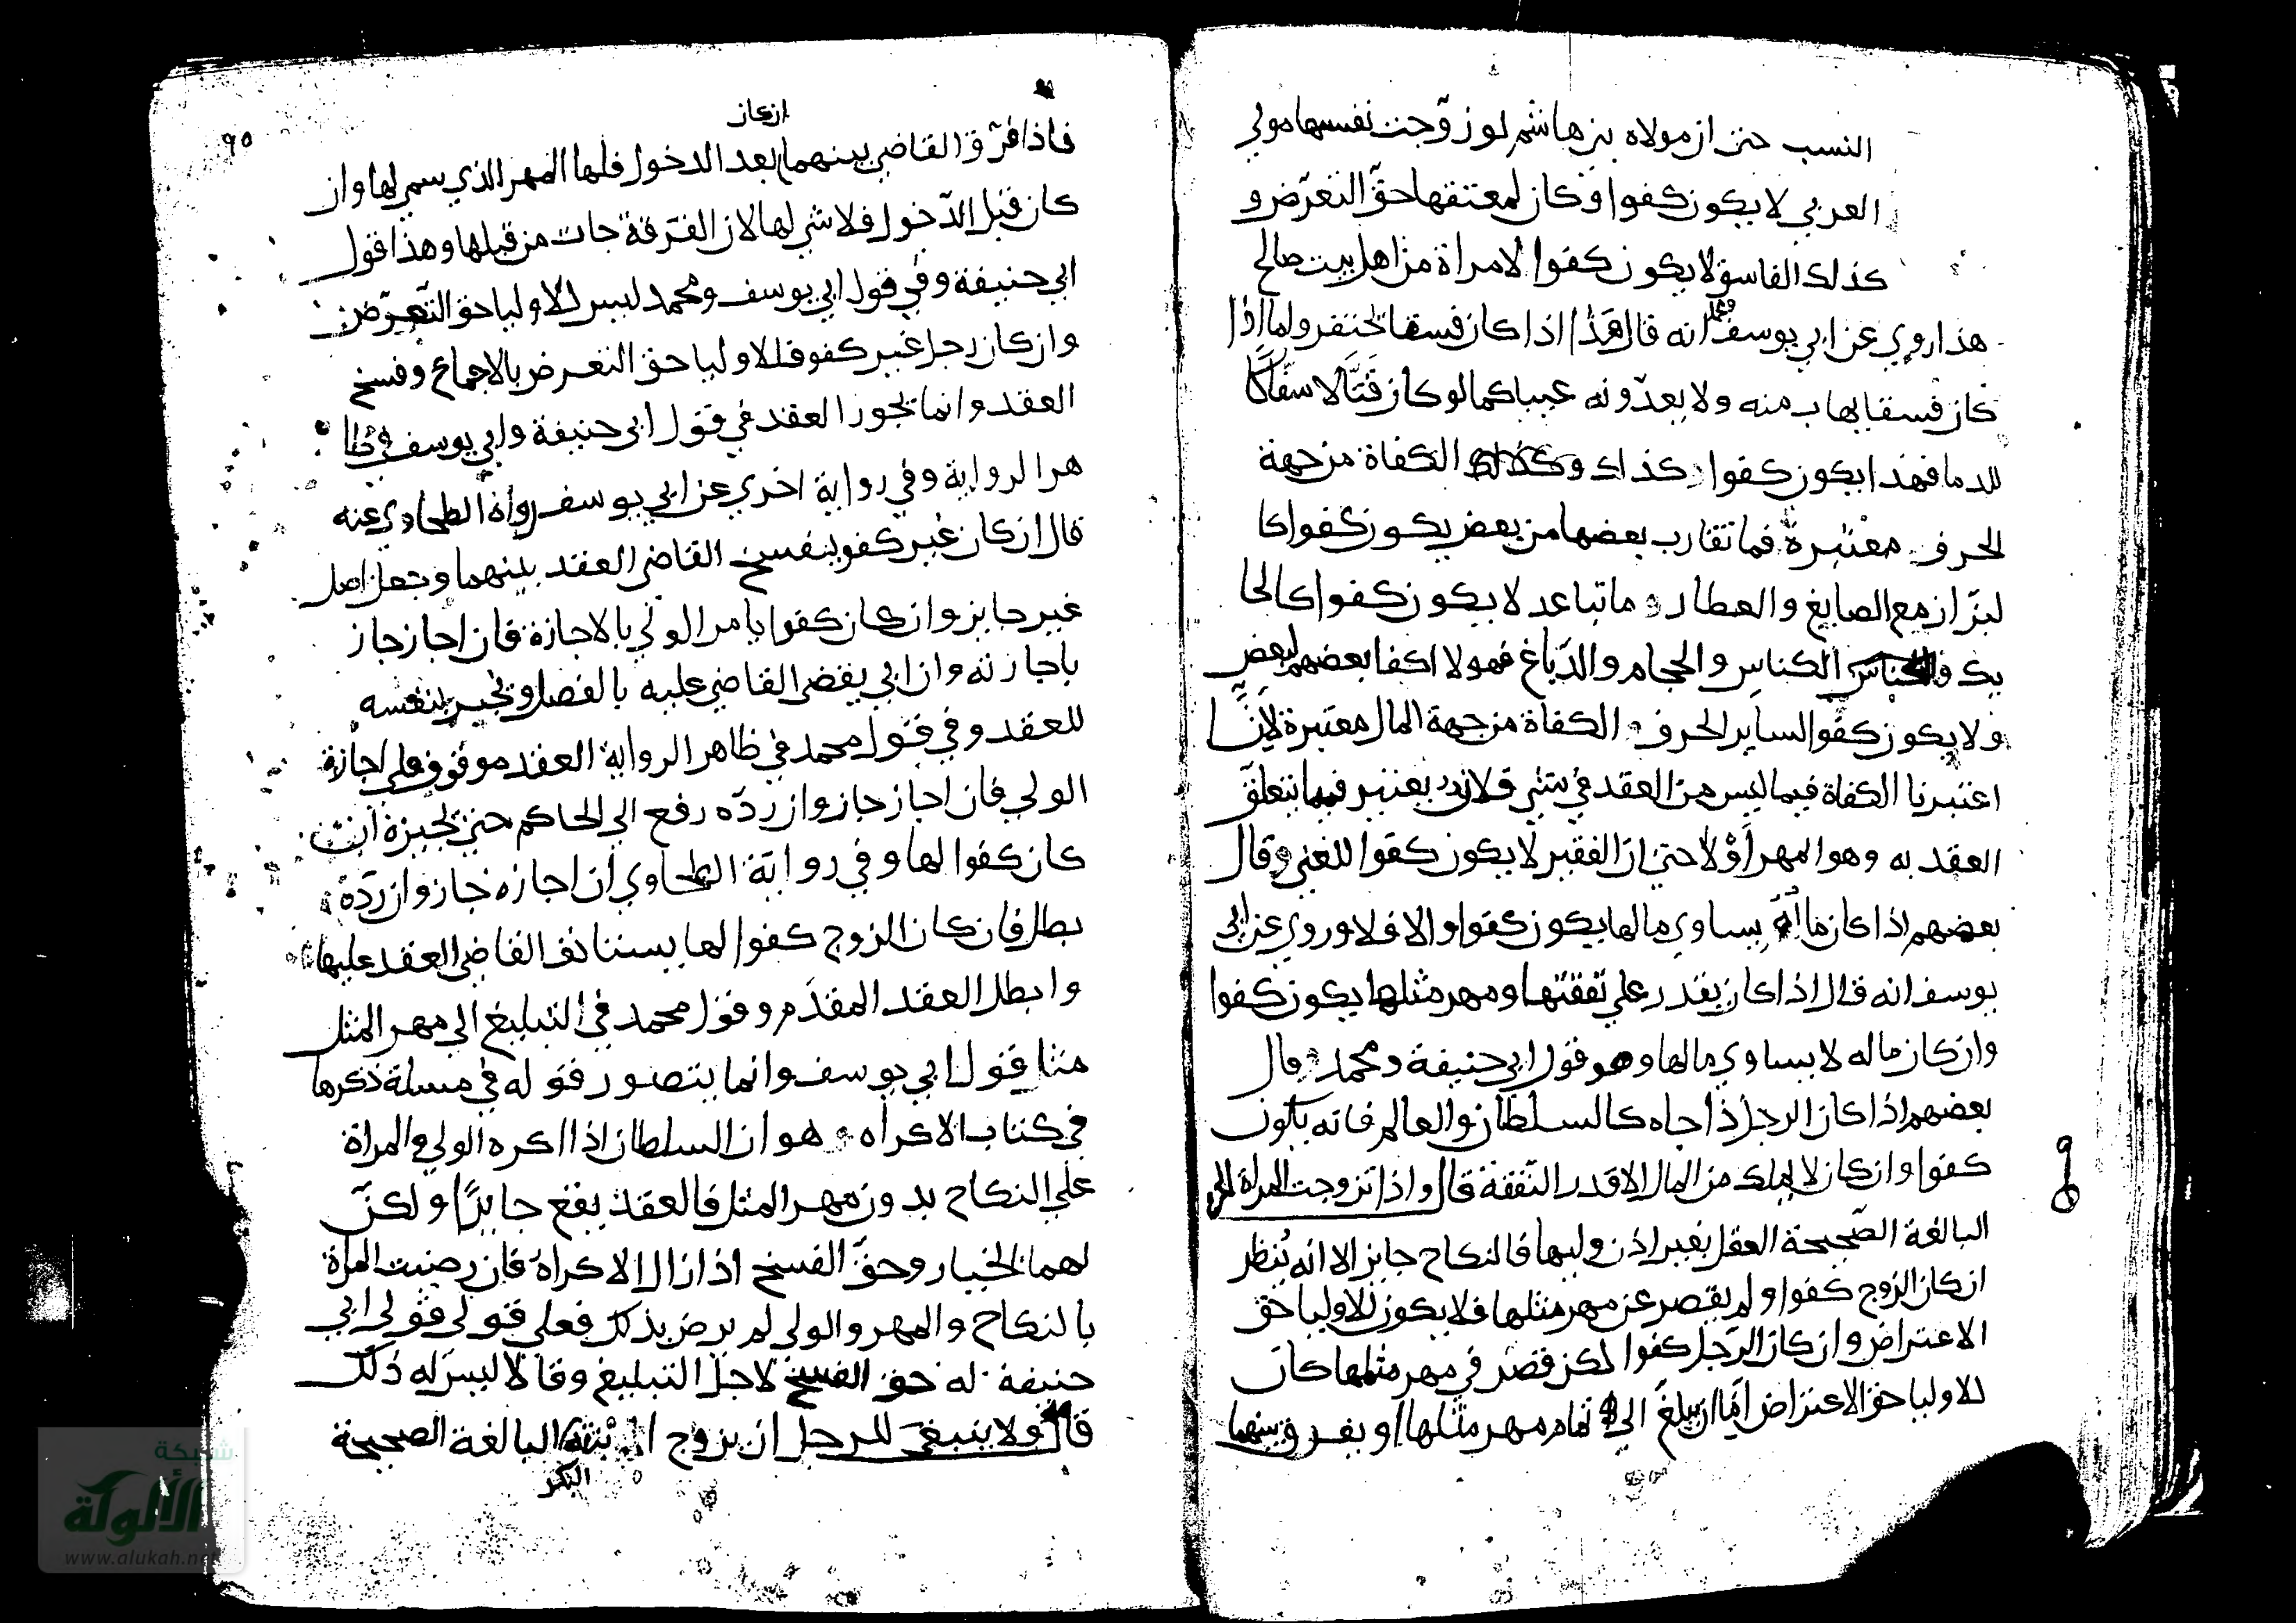 النسب حتى ان مولاه بنى هاشم لو زوّجت نفسها مولى
العربي لا يكون كفوا وكان لمعتقها حقّ التعرّض و
كذلك الفاسق لا يكون كفوا لامراة من اهل بيت صالح
هذا روي عن ابي يوسف ومحمد انه قال هذا اذا كان فسقا تحتقر واما اذا
كان فسقا يهاب منه ولا يعدّونه عيبا كما لو كان قتّالا سفّاكا
للدما فهذا يكون كفوا كذلك الكفاة من جهة
الحرف معتبرة فما تقارب بعضها من بعض يكون كفوا كا
لبزّاز مع الصايغ والعطار وما تباعد لا يكون كفوا كالحا
يك والكناس والحجام والدّباغ فهولا اكفا بعضهم لبعض
ولا يكون كفوا لساير الحرف و الكفاة من جهة المال معتبرة لانّا
اعتبرنا الكفاة فيما ليس من العقد في شي فلان يعتبر فيما يتعلّق
العقد به وهو المهر أولا حتى ان الفقير لا يكون كفوا للغني وقال
بعضهم اذا كان ماله يساوي مالها يكون كفوا والا فلا وروي عن ابي
يوسف انه قال اذا كان يقدر على نفقتها ومهر مثلها يكون كفوا
وان كان ماله لا يساوي مالها وهو قول ابي حنيفة ومحمد وقال
بعضهم اذا كان الرجل ذا جاه كالسلطان والعالم فانه يكون
كفوا وان كان لا يملك من المال الا قدر النّفقة قال واذا تزوجت المراة الحرة
البالغة الصّحيحة العقل بغير اذن وليها فالنكاح جايز الا انه يُنظر
ان كان الزوج كفوا ولم يقصر عن مهر مثلها فلا يكون للاوليا حق
الاعتراض وان كان الرّجل كفوا لكن قصر في مهر مثلها كان
للاوليا حق الاعتراض امّا ان يبلغ الى تمام مهر مثلها او يفرق بينهما
٩٥
ان كان
فاذا فرّق القاضي بينهما بعد الدخول فلها المهر الذي سمي لها وان
كان قبل الدّخول فلا شي لها لان الفرقة جات من قبلها وهذا قول
ابي حنيفة وفي قول ابي يوسف ومحمد ليس للاوليا حق التعرّض
وان كان رجل غير كفو فللاوليا حق التعرض بالاجماع وفسخ
العقد وانما يجوز العقد في قول ابي حنيفة وابي يوسف في ظا
هر الرواية وفي رواية اخري عن ابي يوسف رواه الطحاوي عنه
قال ان كان غير كفو ينفسخ القاضي العقد بينهما وتجعل اصل
غير جايز وان كان كفوا يامر الولي بالاجازة فان اجاز جاز
باجازته وان ابي يقضي القاضي عليه بالفصل ويجيز بنفسه
للعقد وفي قول محمد في ظاهر الرواية العقد موقوف على اجازة
الولي فان اجاز جاز وان ردّه رفع الي الحاكم حتى يجيزة ان
كان كفوا لها وفي رواية الطحاوي ان اجازه جاز وان ردّه
بطل فان كان الزوج كفوا لها يستانف القاضي العقد عليها
وابطل العقد المقدّم وقول محمد في التبليغ الى مهر المثل
مثل قول ابي يوسف وانما يتصور قوله في مسلة ذكرها
في كتاب الاكراه و هو ان السلطان اذا اكره الولي والمراة
على النكاح بدون مهر المثل فالعقد يقع جايزًا ولكنّ
لهما الخيار وحقّ الفسخ اذا زال الاكراه فان رضيت المراة
بالنكاح والمهر والولى لم يرض بذلك فعلى قولي قولى ابي
حنيفة له حق الفسخ لاجل التبليغ وقالا ليس له ذلك
قال ولا ينبغي للرجل ان يزوج ابنته البالغة الصحيحة
البكر
شبكة
الألوكة
www.alukah.net